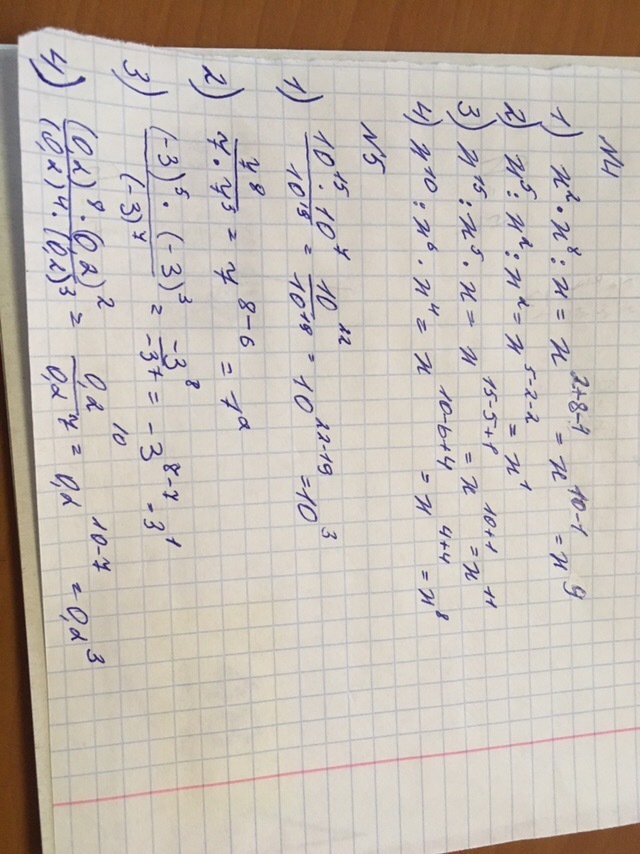 N4
1) x² · x⁸ : x = x²⁺⁸⁻¹ = x¹⁰⁻¹ = x⁹
2) x⁵ : x² : x² = x⁵⁻²⁻² = x¹
3) x¹⁵ : x⁵ · x = x¹⁵⁻⁵⁺¹ = x¹⁰⁺¹ = x¹¹
4) x¹⁰ : x⁶ · x⁴ = x¹⁰⁻⁶⁺⁴ = x⁴⁺⁴ = x⁸
N5
1) 10¹⁵ · 10⁷ / 10¹⁹ = 10²² / 10¹⁹ = 10²²⁻¹⁹ = 10³
2) 7⁸ / 7 · 7⁵ = 7⁸⁻⁶ = 7²
3) (-3)⁵ · (-3)³ / (-3)⁷ = -3⁸ / -3⁷ = -3⁸⁻⁷ = 3¹
4) (0,2)⁸ · (0,2)² / (0,2)⁴ · (0,2)³ = 0,2¹⁰ / 0,2⁷ = 0,2¹⁰⁻⁷ = 0,2³